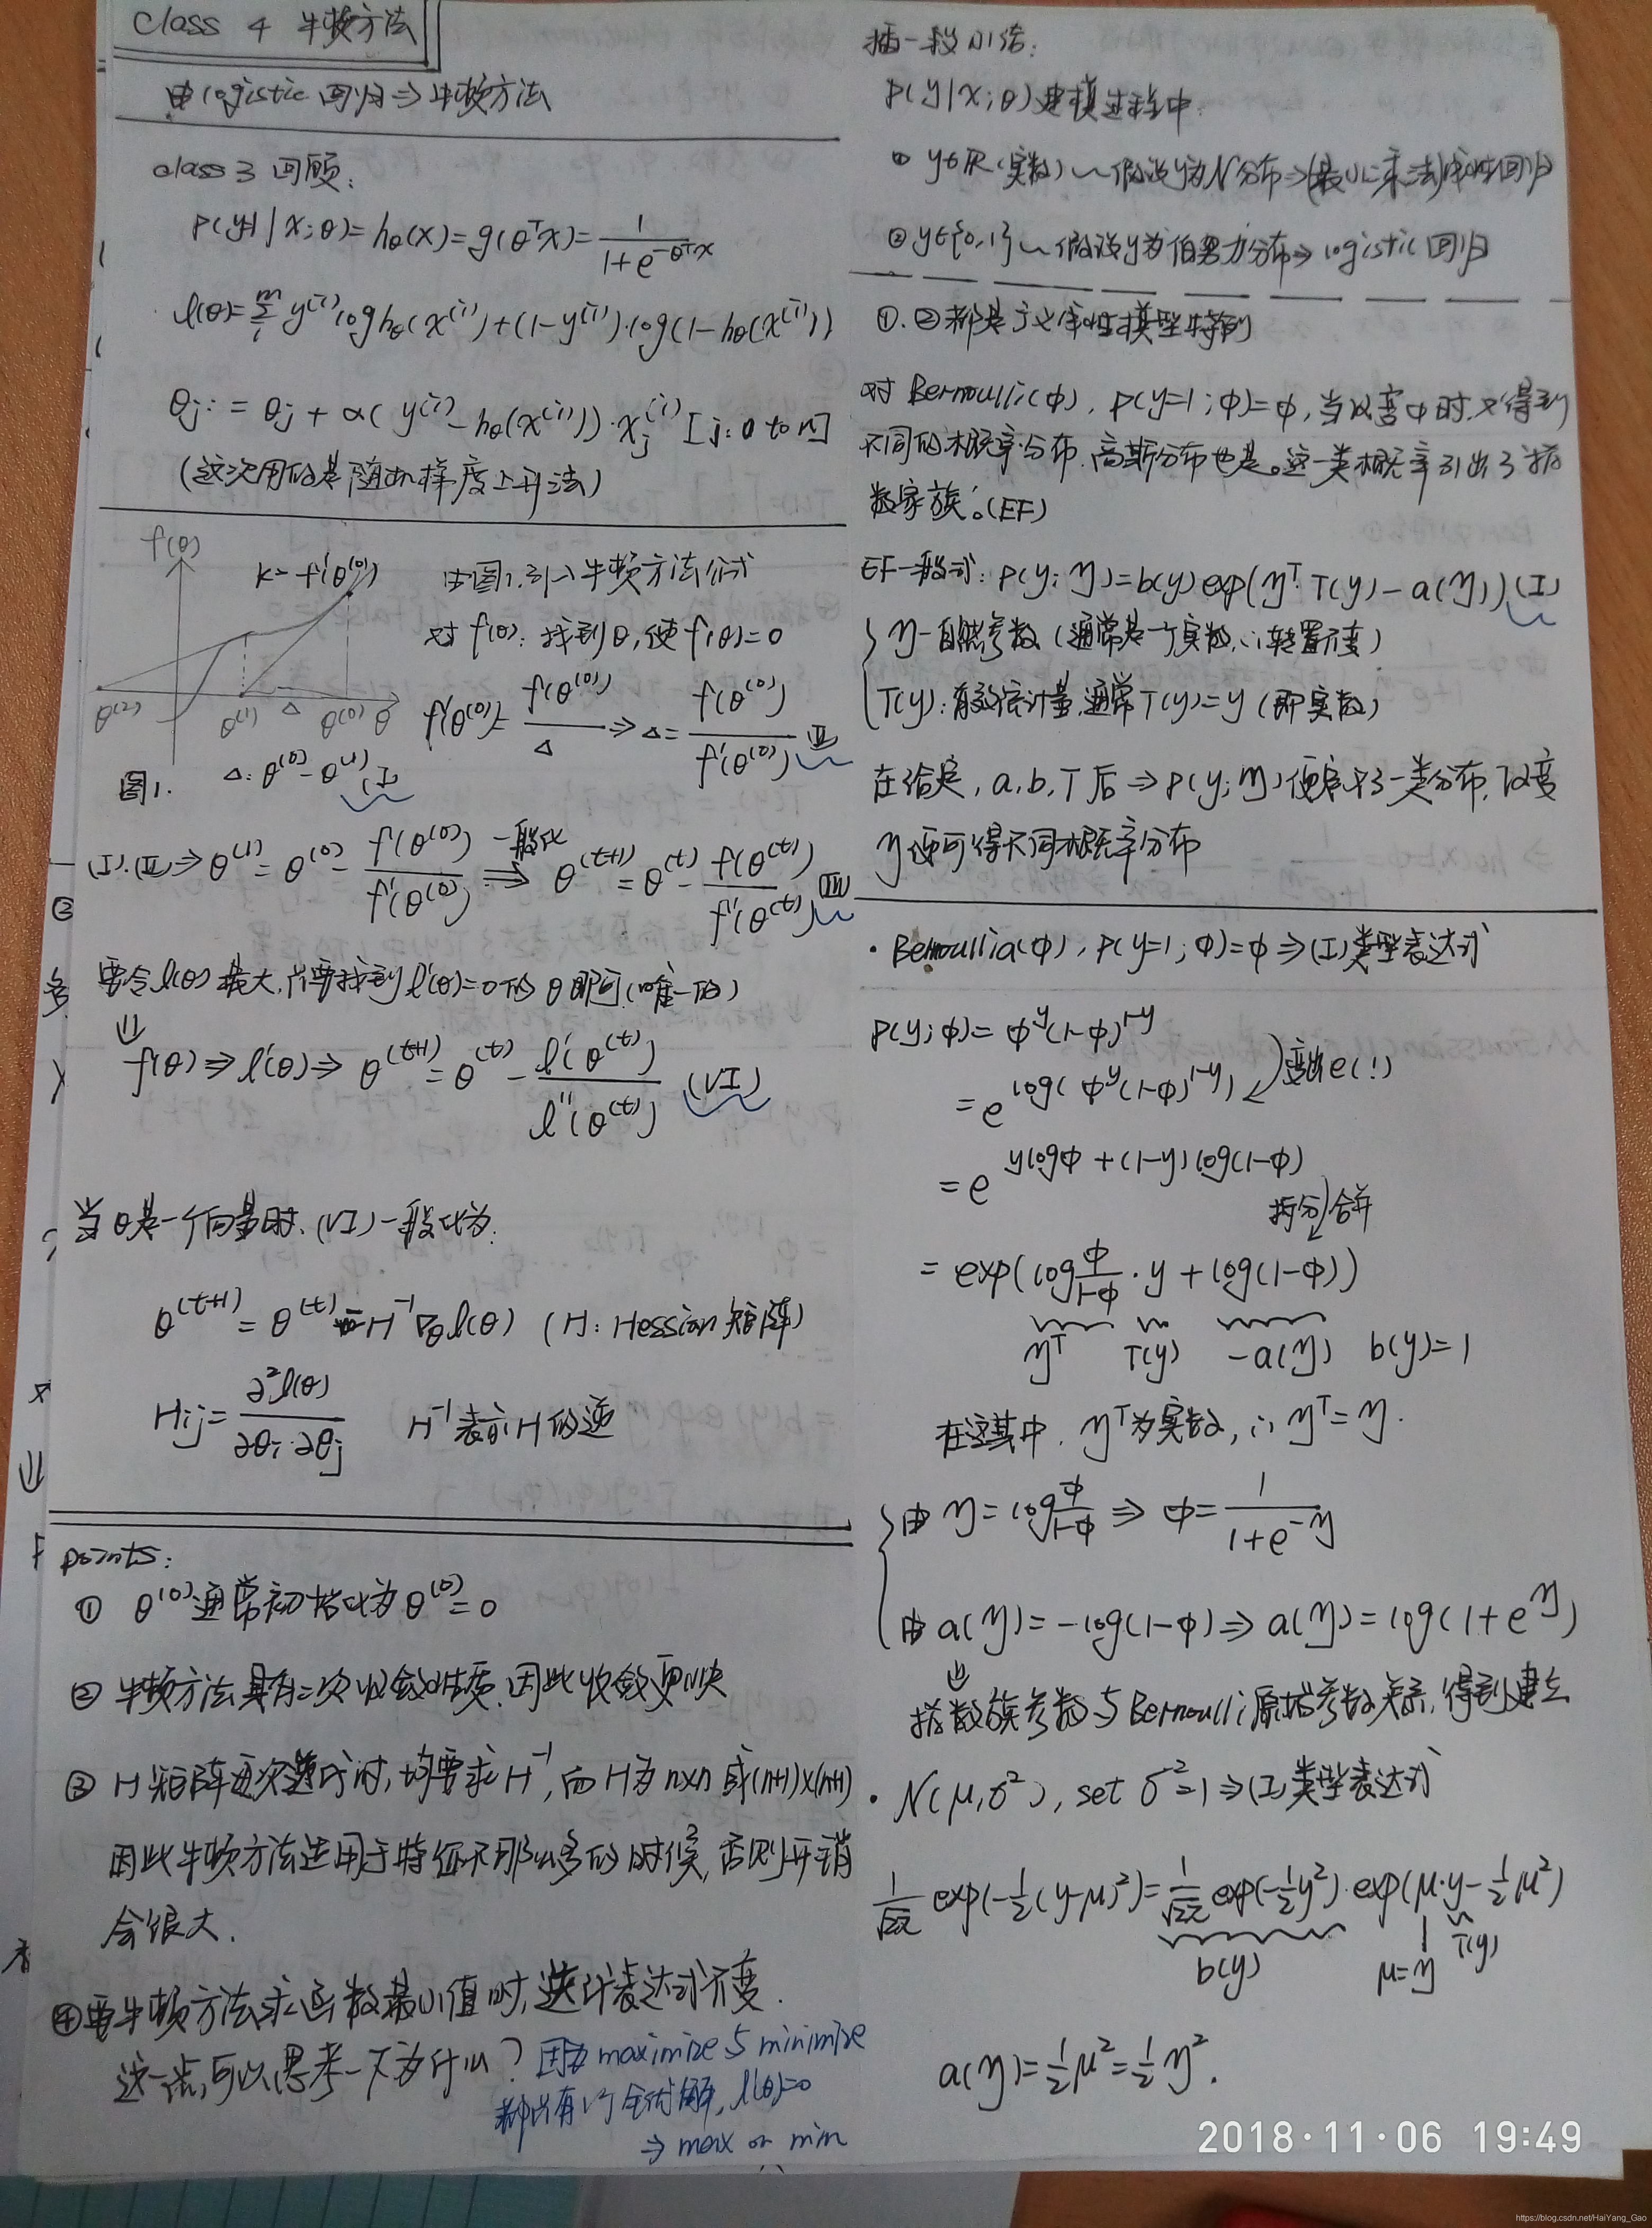 Class 4 牛顿方法
由logistic 回归⇒牛顿方法
class 3 回顾:
P(y=1|x;θ)=hθ(x)=g(θᵀx)=1/(1+e^(-θᵀx))
ℓ(θ)=Σᵢᵐ y⁽ⁱ⁾log hθ(x⁽ⁱ⁾)+(1-y⁽ⁱ⁾)·log(1-hθ(x⁽ⁱ⁾))
θj:=θj+α(y⁽ⁱ⁾-hθ(x⁽ⁱ⁾))·xj⁽ⁱ⁾ [j:0 to n]
(这次用的是随机梯度上升法)
f(θ)
k=f'(θ⁽⁰⁾)
θ⁽²⁾ θ⁽¹⁾ Δ θ⁽⁰⁾ θ
图1. Δ:θ⁽⁰⁾-θ⁽¹⁾ (I)
由图1.引入牛顿方法公式
对f(θ):找到θ,使f(θ)=0
f'(θ⁽⁰⁾)=f(θ⁽⁰⁾)/Δ ⇒Δ=f(θ⁽⁰⁾)/f'(θ⁽⁰⁾) (II)
(I).(II)⇒θ⁽¹⁾=θ⁽⁰⁾-f(θ⁽⁰⁾)/f'(θ⁽⁰⁾) 一般化⇒ θ⁽ᵗ⁺¹⁾=θ⁽ᵗ⁾-f(θ⁽ᵗ⁾)/f'(θ⁽ᵗ⁾) (III)
要令ℓ(θ)最大,只要找到ℓ'(θ)=0的θ即可(唯一的)
⇓
f(θ)⇒ℓ'(θ)⇒θ⁽ᵗ⁺¹⁾=θ⁽ᵗ⁾-ℓ'(θ⁽ᵗ⁾)/ℓ''(θ⁽ᵗ⁾) (VI)
当θ是一个向量时,(VI)一般化为:
θ⁽ᵗ⁺¹⁾=θ⁽ᵗ⁾-H⁻¹∇θℓ(θ) (H:Hession矩阵)
Hij=∂²ℓ(θ)/∂θi·∂θj H⁻¹表示H的逆
points:
① θ⁽⁰⁾通常初始化为θ⁽⁰⁾=0
② 牛顿方法具有二次收敛性质,因此收敛更快
③ H矩阵每次迭代时,均要求H⁻¹,而H为n×n或(n+1)×(n+1)
因此牛顿方法适用于特征不那么多的时候,否则开销
会很大.
④要牛顿方法求函数最小值时,迭代表达式不变.
这一点,可以思考一下为什么? 因为maximize与minimize
都只有1个全优解,ℓ'(θ)=0
⇒ max or min
插一段小结:
P(y|x;θ)建模过程中:
① y∈R(实数)~假设y为N分布⇒(最小二乘法)线性回归
② y∈{0,1}~假设y为伯努力分布⇒logistic回归
①.②都是广义线性模型特例
对Bernoulli(φ),P(y=1;φ)=φ,当改变φ时,又得到
不同的概率分布,高斯分布也是。这一类概率引出了指
数家族:(EF)
EF一般式:P(y;η)=b(y)exp(ηᵀ·T(y)-a(η)) (I)
η-自然参数(通常是一个实数,∴转置不变)
T(y):有效统计量,通常T(y)=y(即实数)
在给定,a,b,T后⇒P(y;η)便定义了一类分布,改变
η便可得不同概率分布
· Bernoullia(φ),P(y=1;φ)=φ⇒(I)类型表达式
P(y;φ)=φ^y(1-φ)^(1-y)
=e^(log(φ^y(1-φ)^(1-y))) 变出e(!)
=e^(ylogφ+(1-y)log(1-φ))
拆分合并
=exp(log φ/(1-φ)·y+log(1-φ))
ηᵀ T(y) -a(η) b(y)=1
在这其中,ηᵀ为实数,∴ηᵀ=η.
由η=log φ/(1-φ)⇒φ=1/(1+e^(-η))
由a(η)=-log(1-φ)⇒a(η)=log(1+e^η)
⇓
指数族参数与Bernoulli原始参数关系,得到建立
· N(μ,σ²),set σ²=1⇒(I)类型表达式
1/√2π exp(-½(y-μ)²)=1/√2π exp(-½y²)·exp(μ·y-½μ²)
b(y) μ=η T(y)
a(η)=½μ²=½η².
2018·11·06 19:49
https://blog.csdn.net/HaiYang_Gao